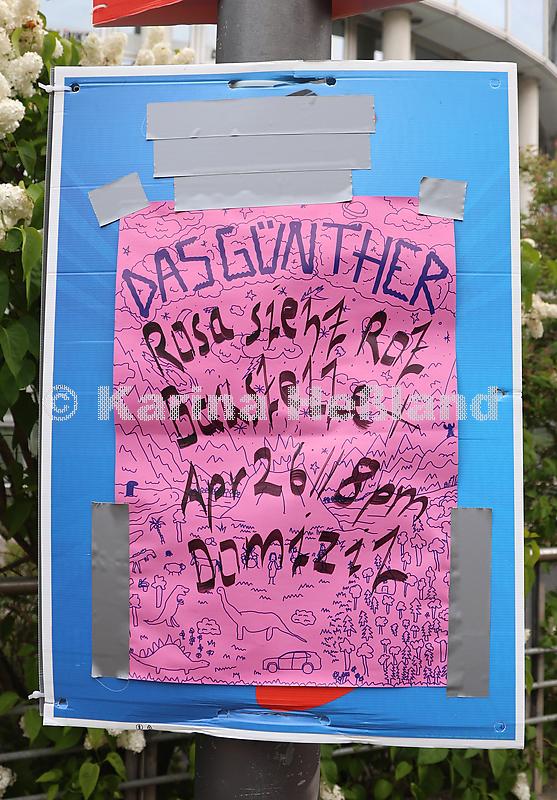 DAS GÜNTHER
Rosa sieht Rot
© Karina Heßland
Apr 26 // 8pm
Domizil